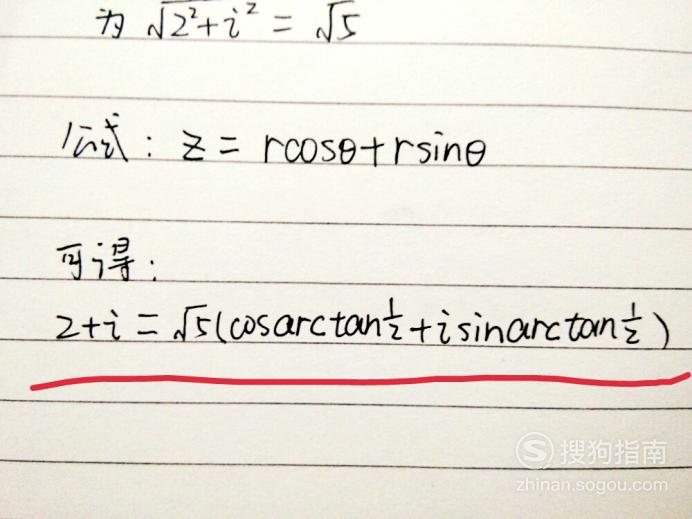 为 √2²+i² = √5
公式: z = rcosθ+rsinθ
可得:
2+i = √5(cosarctan½+isinarctan½)
S 搜狗指南
zhinan.sogou.com